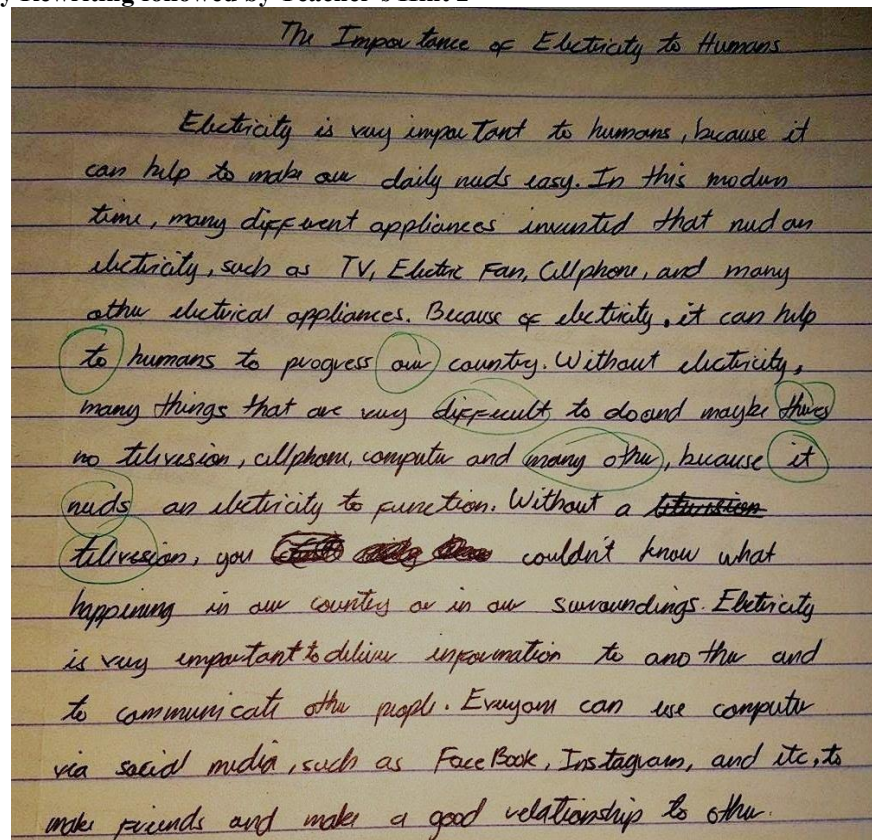 y Rewriting followed by Teacher's Hint 2
The Importance of Electricity to Humans
Electricity is very important to humans, because it
can help to make our daily needs easy. In this modern
time, many different appliances invented that need an
electricity, such as TV, Electric Fan, Cellphone, and many
other electrical appliances. Because of electricity, it can help
to humans to progress our country. Without electricity,
many things that are very difficult to do and maybe theres
no television, cellphone, computer and many other, because it
needs an electricity to function. Without a
television, you couldn't know what
happening in our country or in our surroundings. Electricity
is very important to deliver information to another and
to communicate other people. Everyone can use computer
via social media, such as FaceBook, Instagram, and etc, to
make friends and make a good relationship to other.